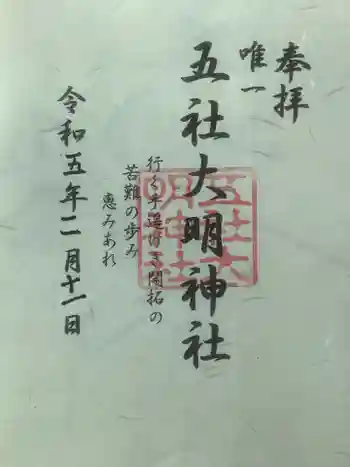 奉拝
唯一
五社大明神社
行く手遥けき開拓の
苦難の歩み
恵みあれ
令和五年二月十一日
五社大
明神社